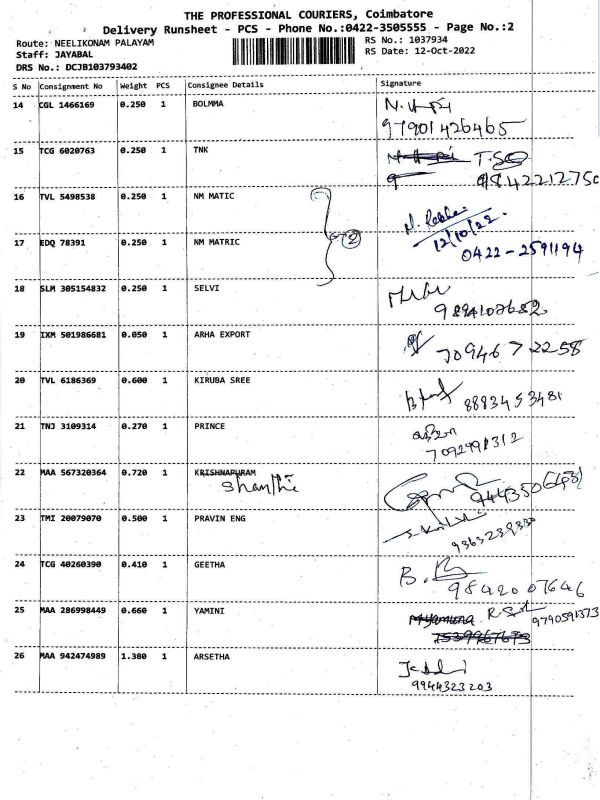 THE PROFESSIONAL COURIERS, Coimbatore
Delivery Runsheet - PCS - Phone No.:0422-3505555 - Page No.:2
Route: NEELIKONAM PALAYAM
RS No.: 1037934
Staff: JAYABAL
RS Date: 12-Oct-2022
DRS No.: DCJB103793402
S No Consignment No Weight PCS Consignee Details Signature
14 CGL 1466169 0.250 1 BOLMMA
97901426465
15 TCG 6020763 0.250 1 TNK
984221275
16 TVL 5498538 0.250 1 NM MATIC
12/10/22.
17 EDQ 78391 0.250 1 NM MATRIC 2
0422-2591194
18 SLM 305154832 0.250 1 SELVI
19 IXM 501986681 0.050 1 ARHA EXPORT
7094672258
20 TVL 6186369 0.600 1 KIRUBA SREE
8883453481
21 TNJ 3109314 0.270 1 PRINCE
22 MAA 567320364 0.720 1 KRISHNAPURAM
Shanthi
23 TMI 20079070 0.500 1 PRAVIN ENG
24 TCG 40260390 0.410 1 GEETHA
B.
9842007646
25 MAA 286998449 0.660 1 YAMINI
9790591373
26 MAA 942474989 1.380 1 ARSETHA
9944323203